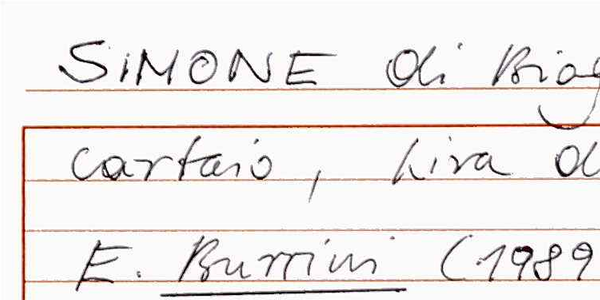 SiMONE di Biag
cartaio, Lira d
E. Burrini (1989